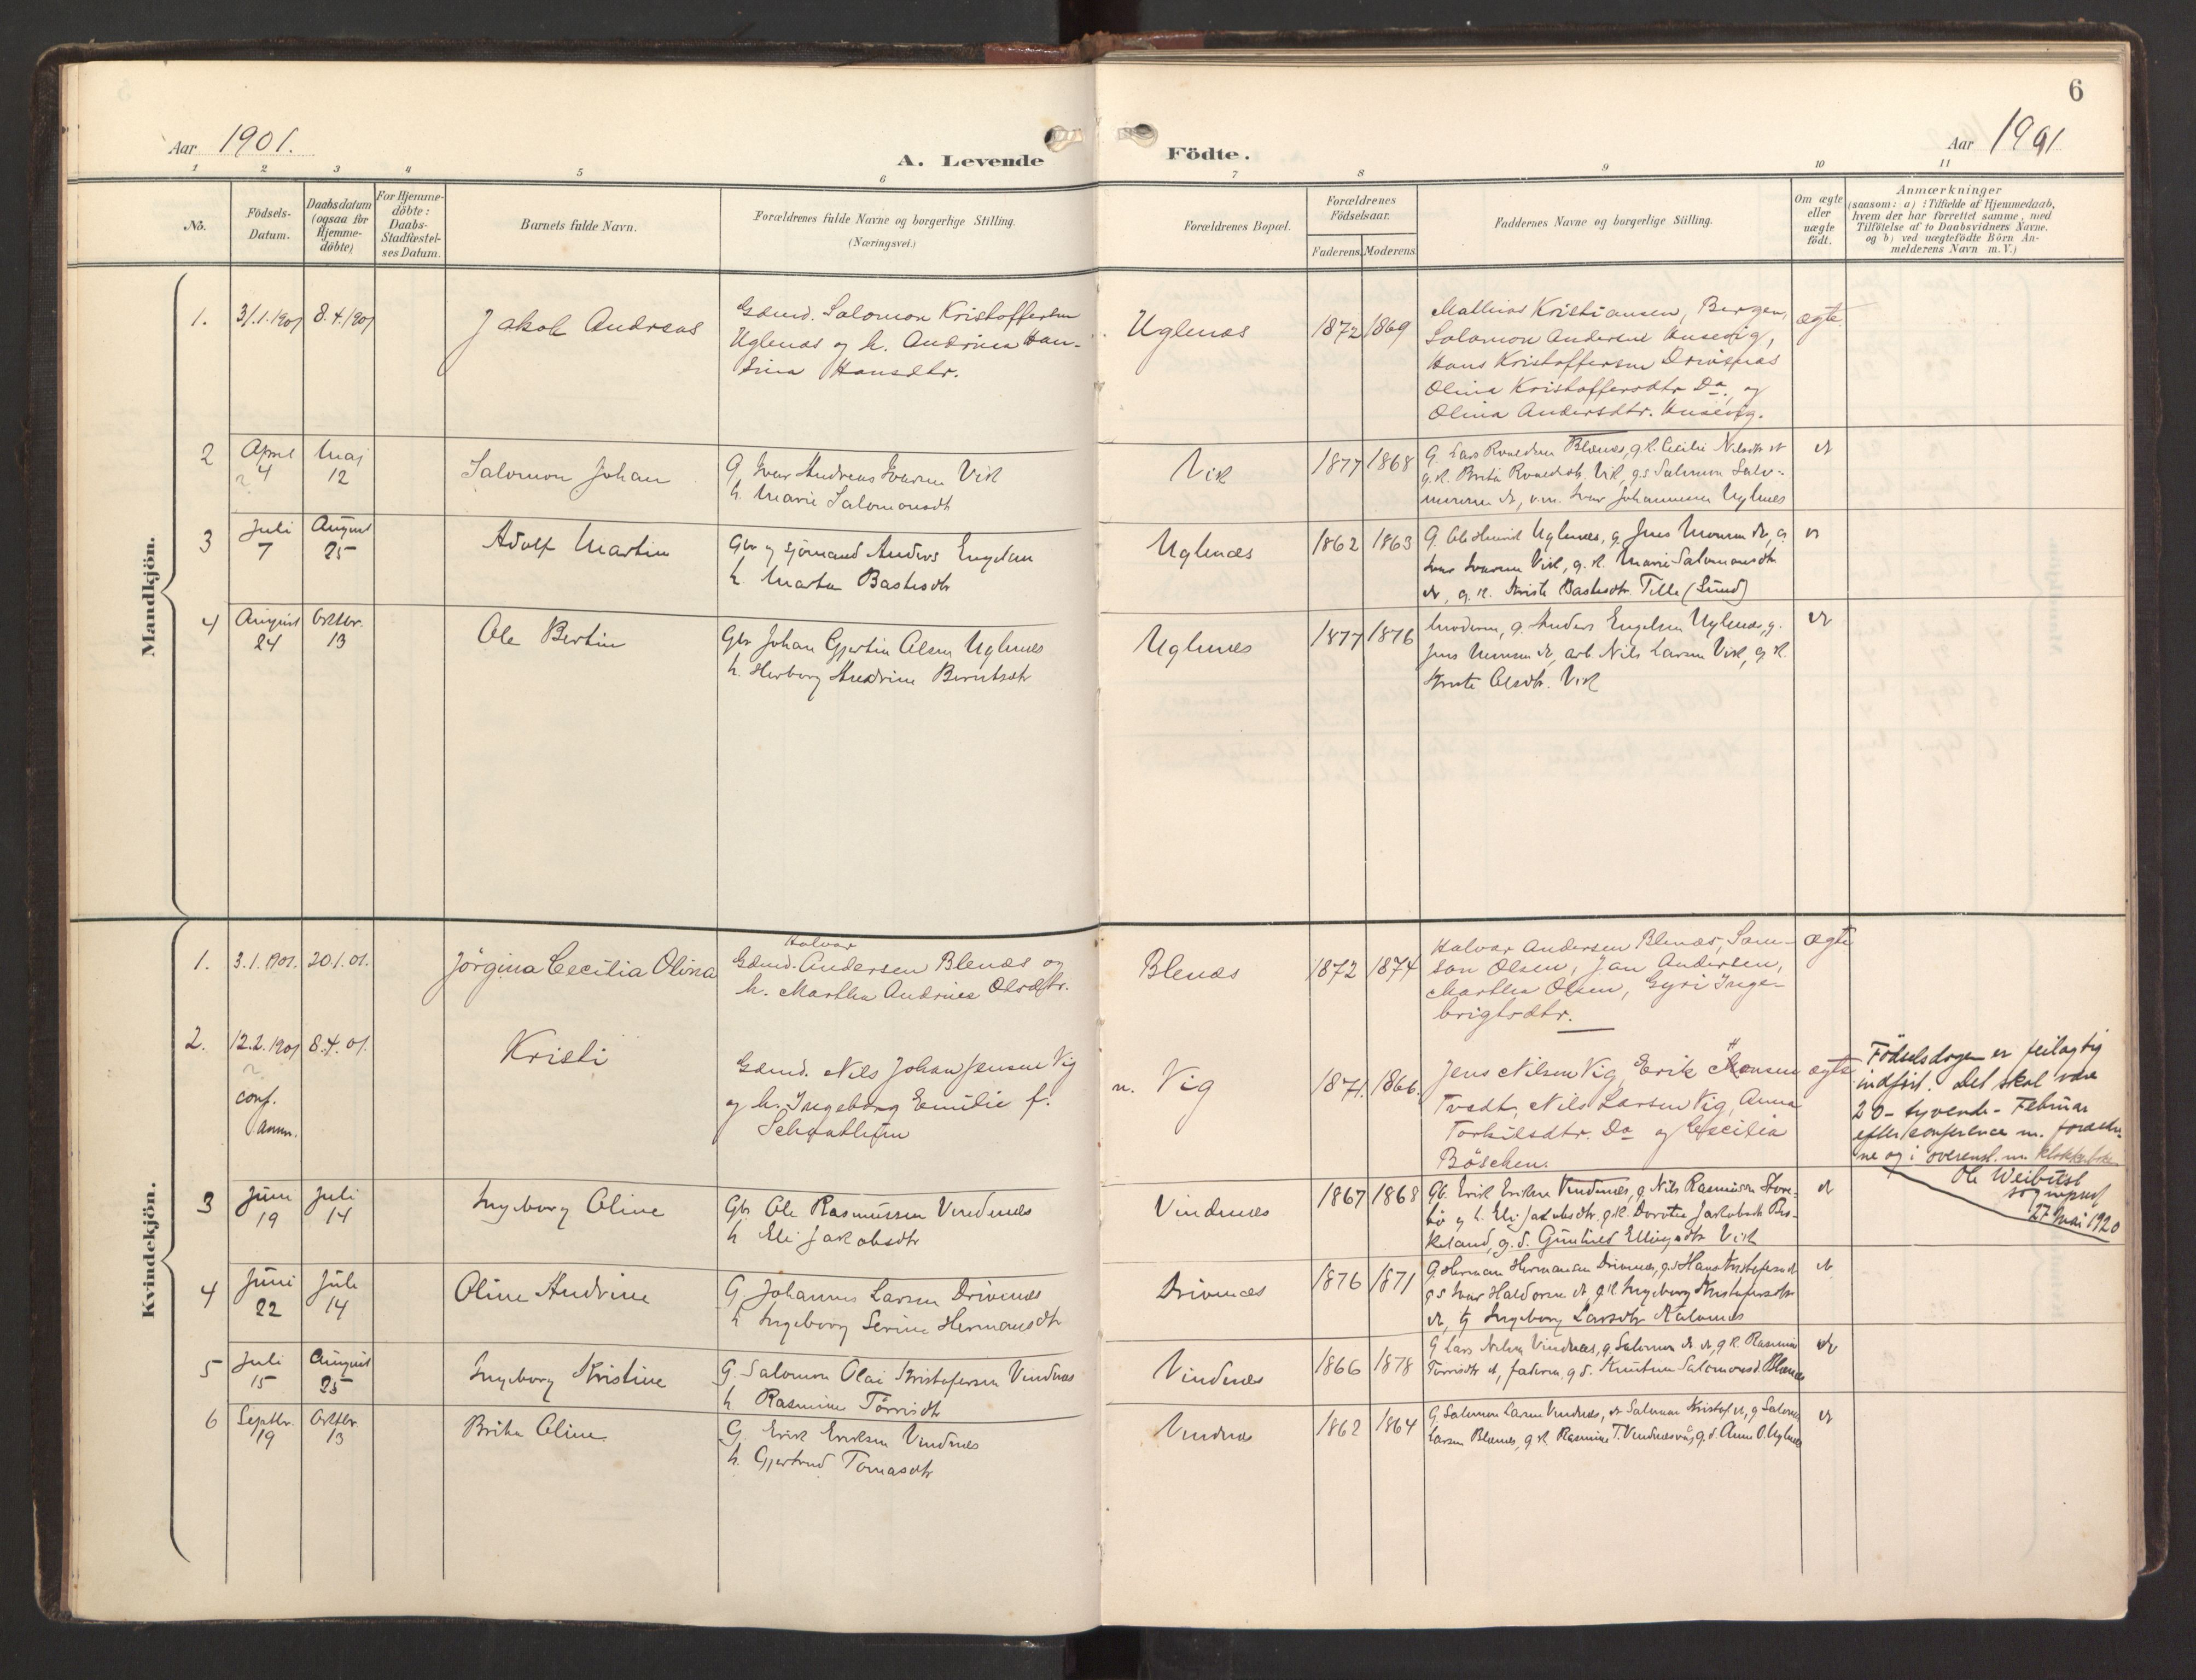 6
Aar 1901.
A. Levende Födte.
Aar 1901
1 2 3 4 5 6 7 8 9 10 11
No.
Födsels-Datum.
Daabsdatum (ogsaa for Hjemme-döbte)
For Hjemme-döbte: Daabs-Stadfæstel-ses Datum.
Barnets fulde Navn.
Forældrenes fulde Navne og borgerlige Stilling.
(Næringsvei.)
Forældrenes Bopæl.
Forældrenes Födselsaar.
Faderens. Moderens.
Faddernes Navne og borgerlige Stilling.
Om ægte eller uægte födt.
Anmærkninger
(saasom: a) i Tilfælde af Hjemmedaab,
hvem der har forrettet samme, med
Tilföielse af to Daabsvidners Navne.
og b) ved uægtefödte Börn An-
melderens Navn m. V.)
Mandkjön.
1. 31.1.1901 8.4.1901 Jakob Andreas
Gdmd. Salomon Kristoffersen
Uglenæs og h. Andrina Han-
sina Hansdtr.
Uglenæs 1872 1869
Mathias Kristiansen, Bergen,
Salomon Andersen Husevig,
Hans Kristoffersen Drivenæs
Olina Kristoffersdtr Do, og
Olina Andersdtr. Husevig.
ægte.
2 April 4 Mai 12 Salomon Johan
G. Ivar Andreas Ivarsen Vik
h. Marie Salomonsdt
Vik 1877 1868
G. Lars Blænes, g.k. Cecilie Nilsdtr
g.k. Brita Vik, g.s. Salomon Salo-
monsen Ivar Johannesen Uglenes
3 Juli 7 August 25 Adolf Martin
Gbr og sjömand Anders Engelsen
h. Marta Bastesdtr
Uglenæs 1862 1863
G. Ole Uglenæs, g. Jens Monsen
Ivar Ivarsen Vik, g.k. Marie Salomonsdtr
g.k. Bastesdtr. Telle (Sund)
4 August 24 Oktbr. 13 Ole Bertin
Gbr Johan Gjertin Olsen Uglenes
h. Herborg Andrine Berntsdtr
Uglenes 1877 1876
Moderen, g. Anders Engelsen Uglenæs, g.
Jens Monsen arb. Nils Larsen Vik, g.k.
Olsdtr. Vik
Kvindekjön.
1. 3.1.1901. 20.1.01. Jörgina Cecilia Olina
Halvor
Gdmd. Andersen Blenæs og
h. Martha Andrine Olsdtr.
Blenæs 1872 1874
Halvor Andersen Blenæs, Sam-
son Olsen, Jan Andersen,
Martha Olsen, Gyri Inge-
brigtsdtr.
ægte
2. 12.2.1901 8.4.01. Kristi
conf.
anm.
Gdmd. Nils Johan Jensen Vig
og h. Ingeborg Emilie f.
n. Vig 1871. 1866.
Jens Nilsen Vig, Erik
Tvedt, Nils Larsen Vig, Anna
Torkilsdtr. Do og Cecilia
Böschen.
ægte
Fødselsdagen er feilagtig
indført. Det skal være
20 - tyvende - Februar
efter conference m. foræld-
ne og i overenst. m. klokkerboken
Ole Weibüst
sogneprest
27 Mai 1920
3 Juni 19 Juli 14 Ingeborg Oline
Gbr Ole Rasmussen Vindenes
h Eli Jakobsdtr
Vindenes 1867 1868
Gb. Erik Eriksen Vindenes, g. Nils Rasmussen Store-
bö og h. Eli Jakobsdtr, g.k. Dorotea Jakobsdt
g.d. Gunhild Ellingsdtr Vik
4 Juni 22 Juli 14 Oline Andrine
G. Johannes Larsen Drivenes
h Ingeborg Serine Hermansdtr
Drivenes 1876 1871
G. Herman Hermansen Drivenes, g.s Hans
g.s Ivar Haldorsen g.k Ingeborg Kristofersdtr
Ingeborg Larsdtr
5 Juli 15 August 25 Ingeborg Kristine
G. Salomon Olai Kristofersen Vindenes
h Rasmine Törrisdtr
Vindenes 1866 1878
G Lars Nilsen Vindenes, g. Salomon g.k. Rasmine
Törrisdtr faderen, g.d. Salomonsd. Blænes
6 Septbr. 19 Oktbr. 13 Brita Oline
G. Erik Eriksen Vindenes
h. Gjertrud Tomasdtr
Vindenes 1862 1864
G. Salomon Larsen Vindenes, Salomon g Salomon
Larsen Blænes, g k Rasmine T. g.d. Anna O. Uglenes